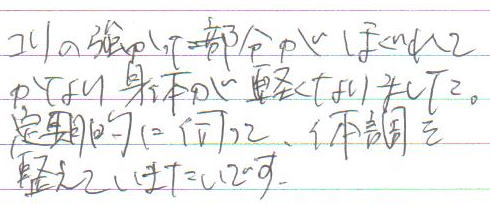 コリの強かった部分がほぐれて
かなり身体が軽くなりました。
定期的に伺って、体調を
整えていきたいです。